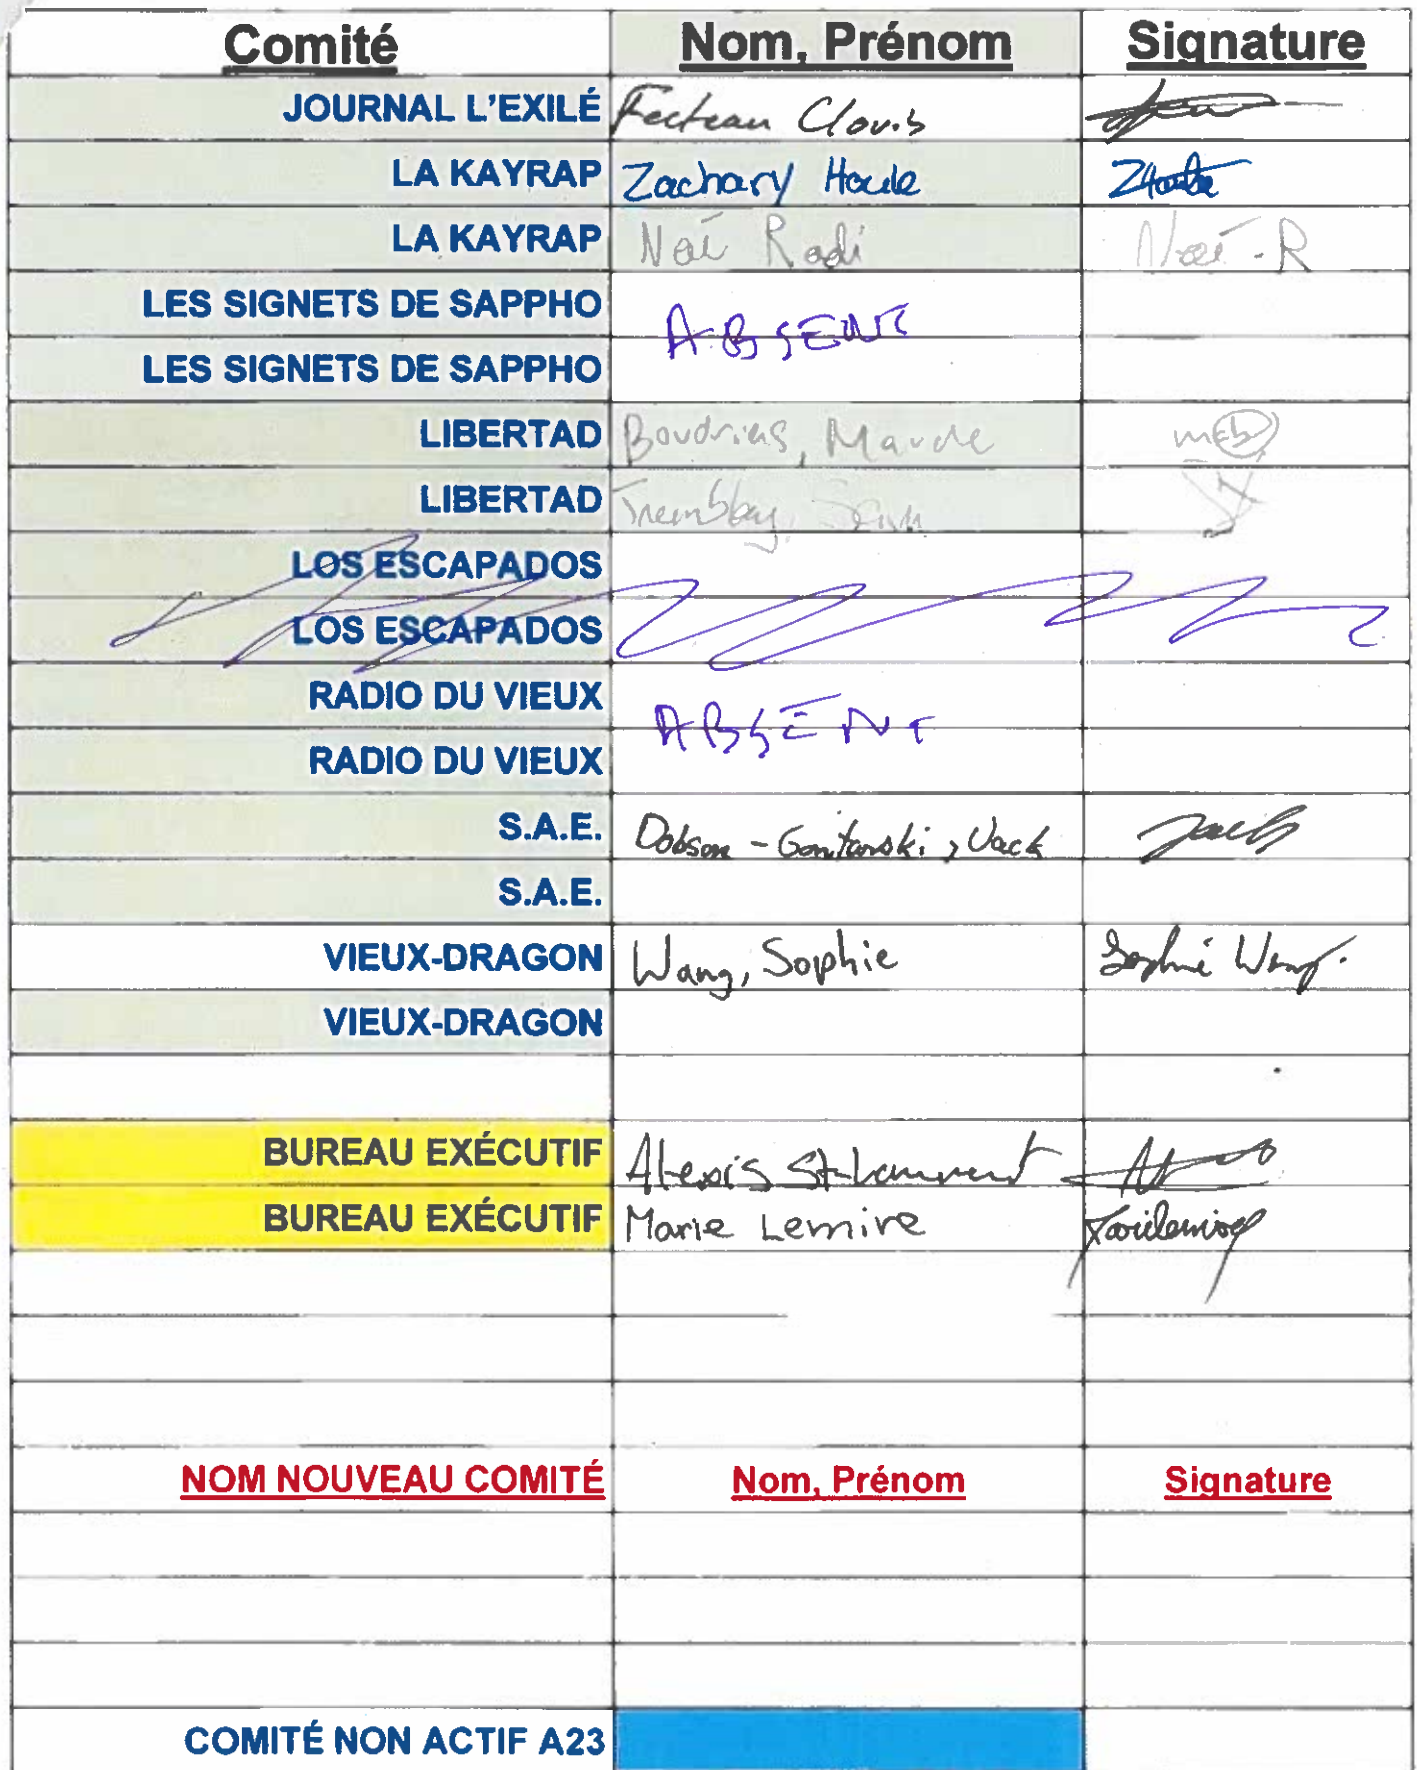 Comité Nom, Prénom Signature
JOURNAL L'EXILÉ Fecteau Clovis
LA KAYRAP Zachary Houle ZHoule
LA KAYRAP Noé Radi Noé-R
LES SIGNETS DE SAPPHO ABSENT
LES SIGNETS DE SAPPHO
LIBERTAD Boudrias, Maude
LIBERTAD Tremblay,
LOS ESCAPADOS
LOS ESCAPADOS
RADIO DU VIEUX ABSENT
RADIO DU VIEUX
S.A.E. Dobson-Gonitanski, Jack Jack
S.A.E.
VIEUX-DRAGON Wang, Sophie Sophie Wang.
VIEUX-DRAGON
BUREAU EXÉCUTIF Alexis St-Laurent
BUREAU EXÉCUTIF Marie Lemire
NOM NOUVEAU COMITÉ Nom, Prénom Signature
COMITÉ NON ACTIF A23